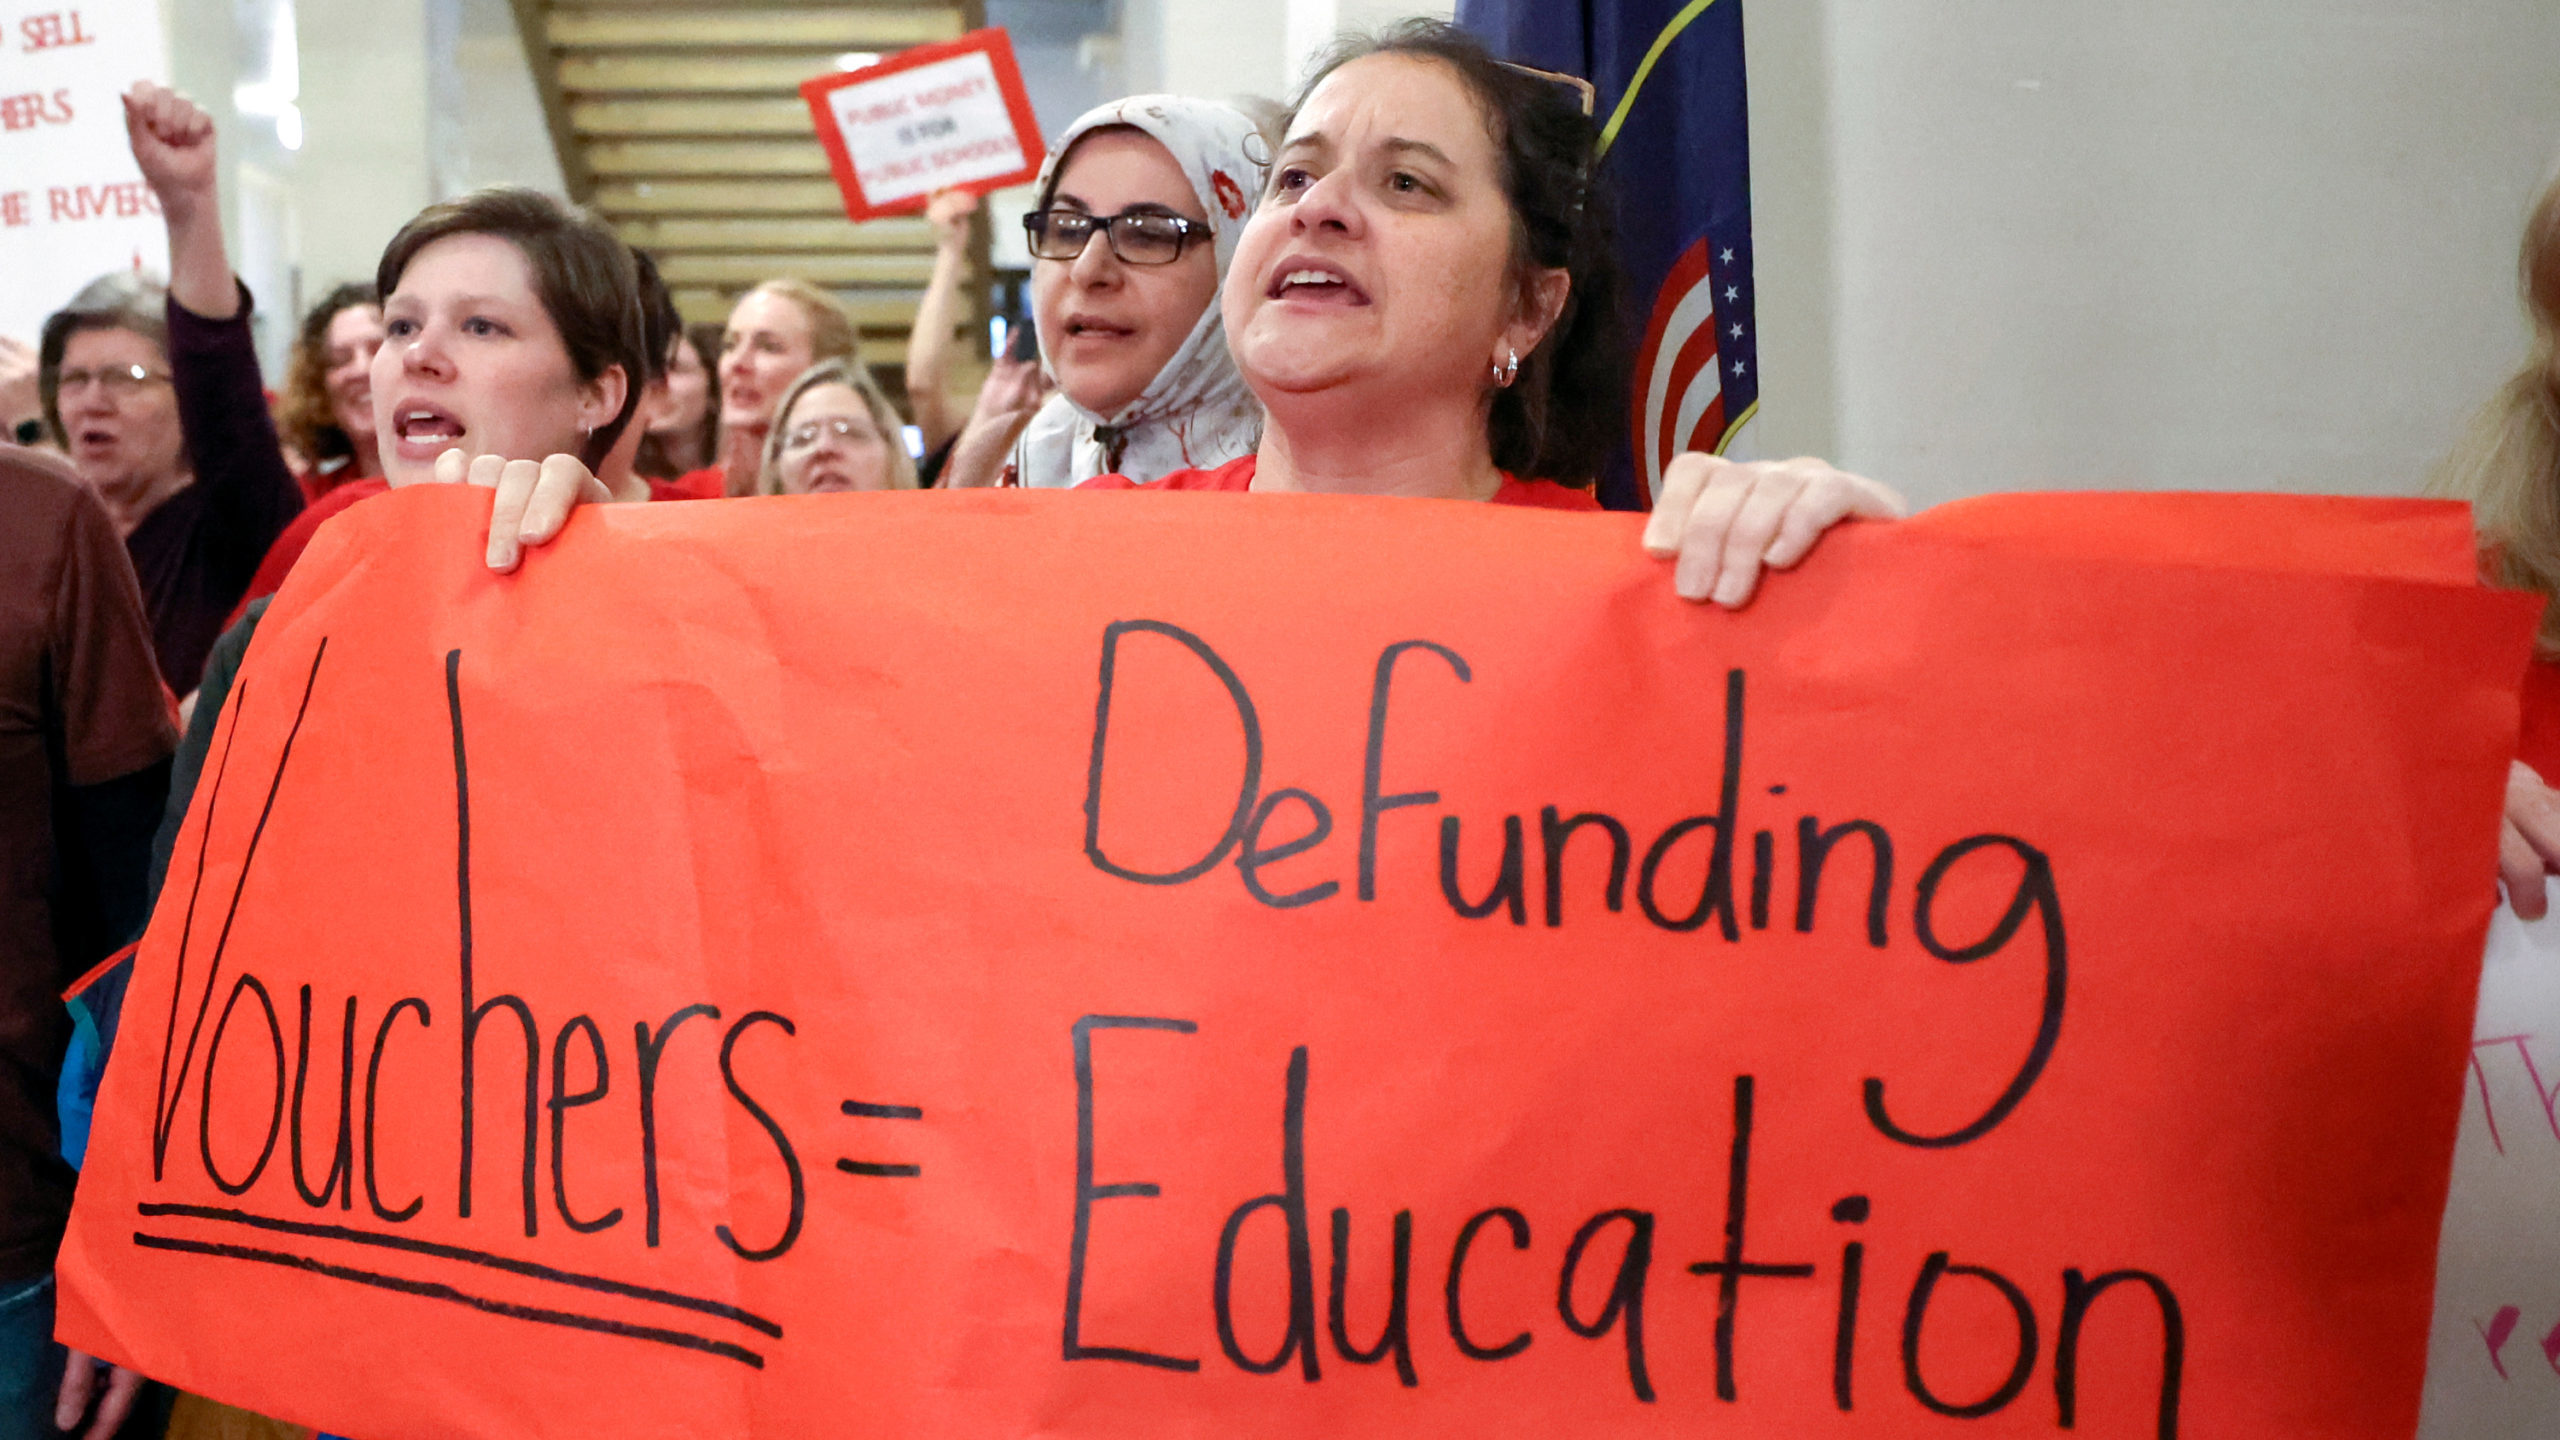 SELL
HERS
HE RIVER
PUBLIC MONEY
IS FOR
PUBLIC SCHOOLS
Vouchers = Defunding
Education